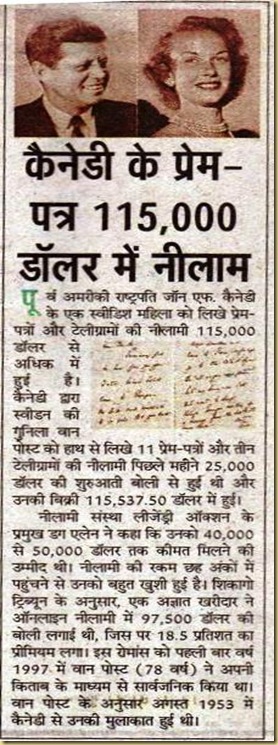 कैनेडी के प्रेम-
पत्र 115,000
डॉलर में नीलाम
पूर्व अमरीकी राष्ट्रपति जॉन एफ. कैनेडी
के एक स्वीडिश महिला को लिखे प्रेम-
पत्रों और टेलीग्रामों की नीलामी 115,000
डॉलर से
अधिक में
हुई है।
कैनेडी द्वारा
स्वीडन की
गुनिला वान
पोस्ट को हाथ से लिखे 11 प्रेम-पत्रों और तीन
टेलीग्रामों की नीलामी पिछले महीने 25,000
डॉलर की शुरुआती बोली से हुई थी और
उनकी बिक्री 115,537.50 डॉलर में हुई।
नीलामी संस्था लीजेंड्री ऑक्शन के
प्रमुख डग एलेन ने कहा कि उनको 40,000
से 50,000 डॉलर तक कीमत मिलने की
उम्मीद थी। नीलामी की रकम छह अंकों में
पहुंचने से उनको बहुत खुशी हुई है। शिकागो
ट्रिब्यून के अनुसार, एक अज्ञात खरीदार ने
ऑनलाइन नीलामी में 97,500 डॉलर की
बोली लगाई थी, जिस पर 18.5 प्रतिशत का
प्रीमियम लगा। इस रोमांस को पहली बार वर्ष
1997 में वान पोस्ट (78 वर्ष) ने अपनी
किताब के माध्यम से सार्वजनिक किया था।
वान पोस्ट के अनुसार अगस्त 1953 में
कैनेडी से उनकी मुलाकात हुई थी।